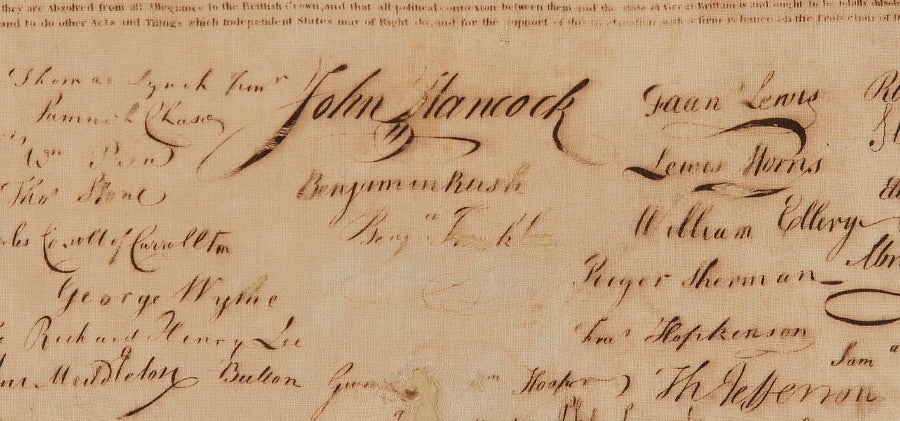 they are Absolved from all Allegiance to the British Crown, and that all political connexion between them and the state of Great Brittain is and ought to be totally
to do other Acts and Things which Independent States may of Right do, and for the support of this Declaration with a firm reliance on the Protection of
Thomas Lynch Junr
Samuel Chase
Wm
Thos Stone
Caroll of Carrollton
George Wythe
Richard Henry Lee
Middleton Button
John Hancock
Benjamin Rush
Benja Franklin
Hooper
Faans Lewis
Lewis Morris
William Ellery
Roger Sherman
Fras Hopkinson
Th Jefferson
Sama